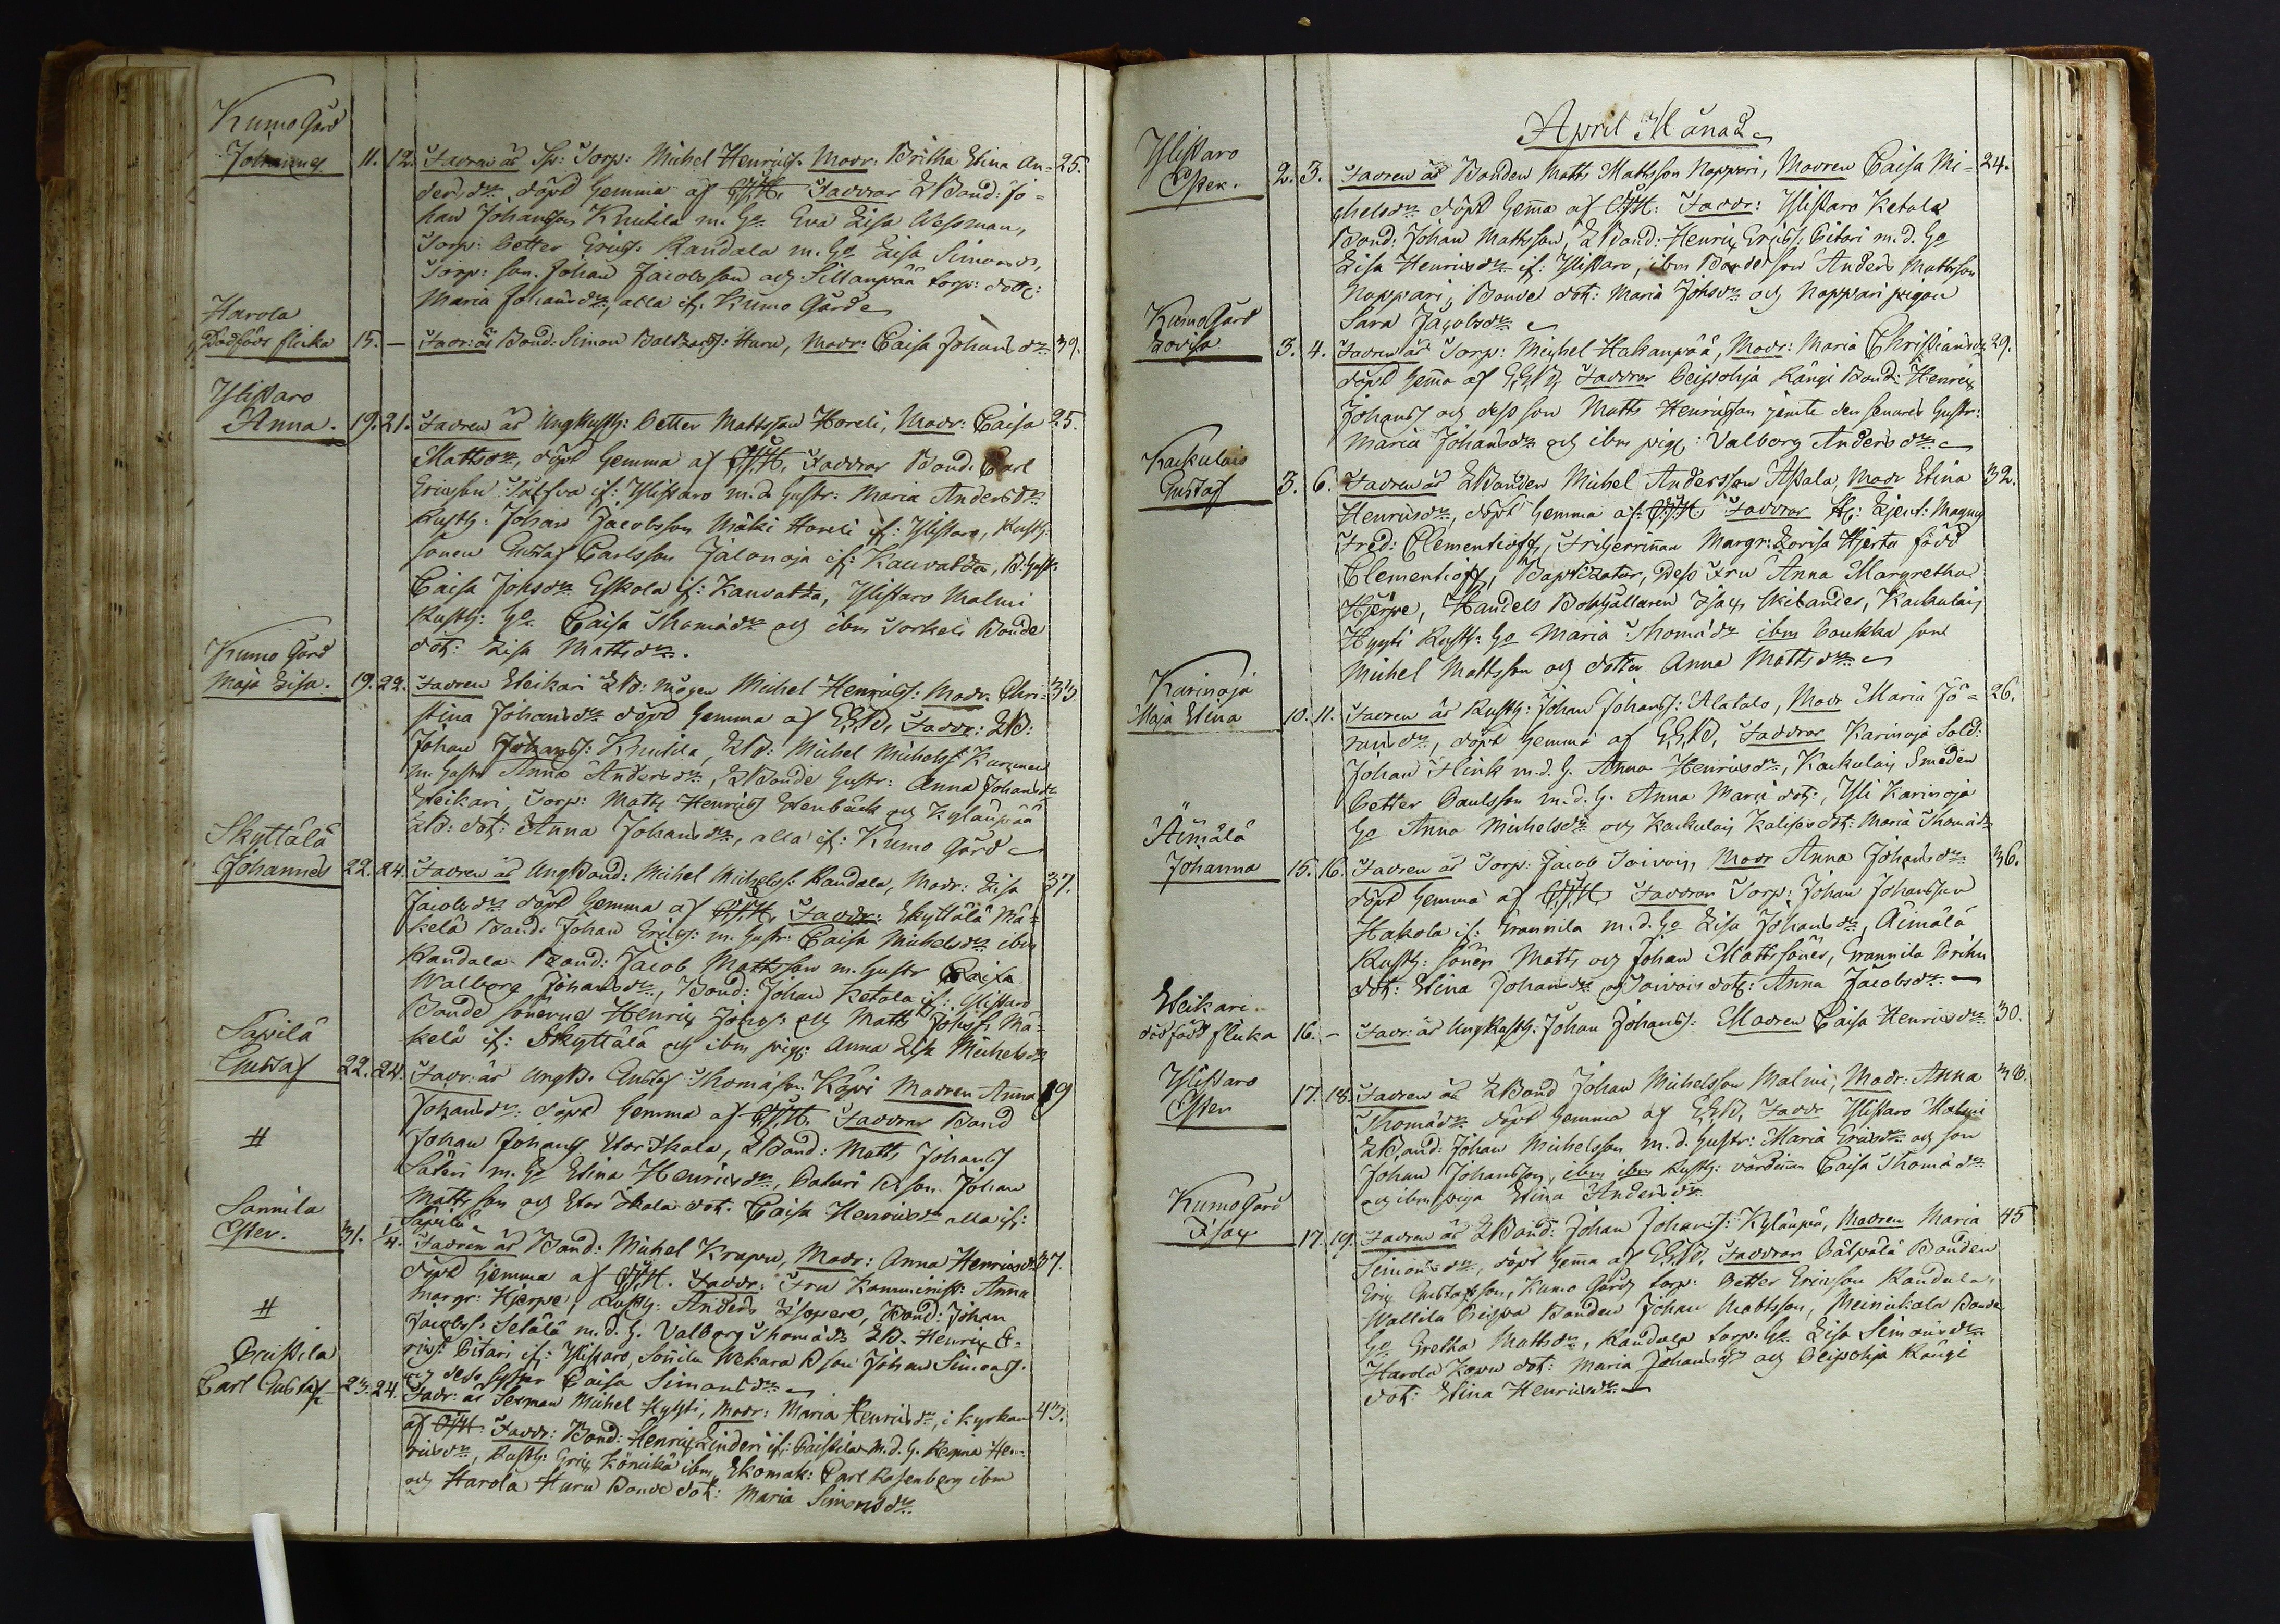 Kumo Gård
Johannes 11. 12. Fadren är Sp: Torp: Michel Henrics. Modr: Britha Stina An= 25.
ders dr. döpt hemma af Faddrar LBond: Jo=
han Johansson Knutila m. Ho Eva Lisa Wessman,
Torp: Petter Erics. Randala m. Ho Lisa Simonsdr,
Torp: son. Johan Jacobsson och Sillanpää torp: dott:
Maria Johansdr, alla if. Kumo Gård
Harola
Dödfödt flicka 15. — Fadr: är Bond: Simon Balthzars: Huru, Modr: Caisa Johansdr. 39.
Ylistaro
Anna. 19. 21. Fadren är Ung Rusth: Petter Mattsson Horeli, Modr: Caisa 25.
Mattsdr, döpt hemma af Faddrar Bond. Carl
Ericsson if: Ylistaro m. d. hustr: Maria Andersdr
Rusth: Johan Jacobsson Mäki Horeli if: Ylistaro, Rusth:
sonen Gustaf Carlsson Jalonoja if: Kauvatsa, B: hustr:
Caisa Johsdr. Eskola if: Kauvatsa, Ylistaro Malmi
Rusth: Ho Caisa Thomædr och ibm Torkeli Bonde
dot: Lisa Mattsdr.
Kumo Gård
Maja Lisa. 19. 22. Fadren Steikari LB: mågen Michel Henrics: Modr. Chri= 33
stina Johansdr döpt hemma af Faddr: LB:
Johan Johans: Knutila, LB: Michel Michels:
m. hustr Anna Andersdr, LBonde hustr: Anna Johansdr
Steikari, Torp: Matts Henrics Stenbäck och Kylänpää
LB: dot: Anna Johansdr, alla if: Kumo Gård
Skyttälä
Johannes 22. 24. Fadren är Ung Bond: Michel Michels: Randala, Modr: Lisa 37.
Jacobsdr döpt hemma af Faddr: Skyttälä Mä=
kelä Bond: Johan Erics: m. hustr: Caisa Michelsdr ibm
Randala Bond: Jacob Mattsson m. hustr Caisa
Walborg Johansdr, Bond: Johan Ketola if: Ylistaro
Bonde sönerne Henric Johs: och Matts Johss: Mä=
kelä if: Skyttälä och ibm pig: Anna Lisa Michelsdr
Säpilä
Gustaf 22. 24. Fadr: är Ung B. Gustaf Thomason Köpi Modren Anna 19
Johansdr: döpt hemma af Faddrar Bond
Johan Johans Stor Skala, LBond: Matts Johans
Säteri m. Ho Stina Henricsdr, son Johan
Mattsson och Stor Skala dot. Caisa Henricsdr alla if:
Säpilä
Sonnila
Ester. 31. 1/4. Fadren är Bond: Michel Krapu, Modr: Anna Henricsdr 37.
döpt hemma af Faddr: Fru Kamminist: Anna
Margr: Hjerpe, Rusth: Anders Isopere, Bond: Johan
Jacobs: Setälä m. d. h. Valborg Thomædr LB. Henric E=
rics: Pitari if: Ylistaro, Sonnila Wekara B son Johan Simons.
och dess syster Caisa Simonsdr
Praistila
Carl Gustaf 23. 24. Fadr: är Sexman Michel Hyhti, Modr: Maria Henricsdr, i kyrkan 43.
af Faddr: Bond: Henric Linderi if: Paistila m. d. h. Regina Hen=
ricsdr, Rusth: Eric Könickä ibm, Skomak: Carl Rosenberg ibm
och Harola Huru Bonde dot: Maria Simonsdr.
April Månad
Ylistaro
Ester. 2. 3. Fadren är Bonden Matts Mattsson Noppari, Modren Caisa Mi= 24.
chelsdr döpt hemma af Faddr: Ylistaro Ketola
Bond: Johan Mattsson, LBond: Henric Erics: Pitari m. d. Ho
Lisa Henricsdr if: Ylistaro, ibm Bonde son Anders Mattsson
Noppari, Bonde dot: Maria Johsdr och Noppari pigan
Sara Jacobsdr
Kumo Gård
Lovisa 3. 4. Fadren är Torp: Michel Hakanpää, Modr: Maria Christiansdr 29.
döpt hemma af Faddrar Peipohja Kangi Bond: Henric
Johans och dess son Matts Henricsson jemte den senares hustr:
Maria Johansdr och ibm pig: Valborg Andersdr
Kaukulais
Gustaf 3. 6. Fadren är LBonden Michel Andersson Assala, Modr Stina 32.
Henricsdr, döpt hemma af Faddrar H: Lieut: Magnus
Fred: Clementeoff, Friherrinnan Margr: Lovisa Hjerta född
Clementeoff, Baptizator, Dess Fru Anna Margretha
Hjerpe, Handels Bokhållaren Isac Skilander, Kaukulais
Hyyti Rusth: Ho Maria Thomædr ibm Poukka son
Michel Mattsson och dotter Anna Mattsdr
Karinoja
Maja Stina 10. 11. Fadren är Rusth: Johan Johans: Alatalo, Modr Maria Jö= 26.
ransdr, döpt hemma af Faddrar Karinoja Sold:
Johan Flink m. d. h. Anna Henricsdr, Kaukulais Smeden
Petter Paulsson m. d. h. Anna Maria dot:, Yli Karinoja
Ho Anna Michelsdr och Kaukulais dot: Maria Thomædr
Äimälä
Johanna 15. 16. Fadren är Torp: Jacob Toivois, Modr Anna Johansdr 36.
döpt hemma af Faddrar Torp: Johan Johansson
Hakola if: Krannila m. d. Ho Lisa Johansdr, Äimälä
Rusth: sönen Matts och Johan Mattssöner, Krannila
dot: Stina Johansdr, och Toivois dot: Anna Jacobsdr.
Steikari.
dödfödt flicka 16. - Fadr: är Ung Rusth: Johan Johans: Modren Caisa Henricsdr 30.
Ylistaro
Ester 17. 18. Fadren är LBond Johan Michelsson Malmi, Modr: Anna 38.
Thomædr döpt hemma af Faddr Ylistaro Malmi
LBond: Johan Michelsson m. d. hustr: Maria Ericsdr och son
Johan Johansson, ibm ibm Rusth: värdinnan Caisa Thomædr
och ibm piga Stina Andersdr
Kumo Gård
Isac 17. 19. Fadren är LBond: Johan Johans: Kylänpä, Modren Maria 45
Simonsdr, döpt hemma af Faddrar Pälpälä Bonden
Eric Gustafsson, Kumo Gårds torp: Petter Ericsson Randala,
Wallila Peippa Bonden Johan Mattsson, Meinikala Bonde
Ho Gretha Mattsdr, Randala torp: Ho. Lisa Simonsdr
Harola Kowu dot: Maria Johansdr och Peipohja Kangi
dot: Stina Henricsdr